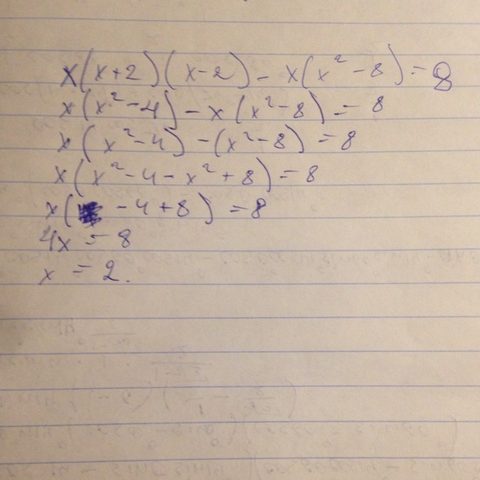 x(x+2)(x-2) - x(x²-8) = 8
x(x²-4) - x(x²-8) = 8
x(x²-4) - (x²-8) = 8
x(x²-4-x²+8) = 8
x( -4+8) = 8
4x = 8
x = 2.